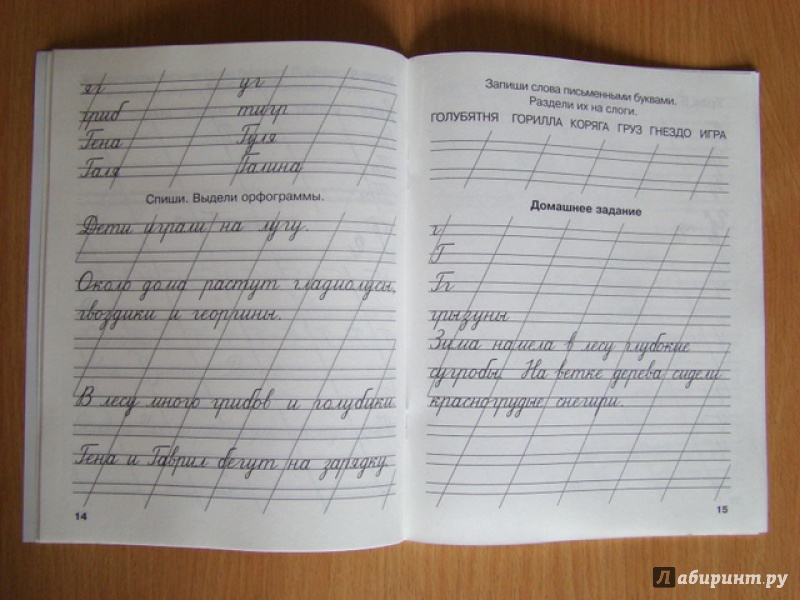 яг уг
гриб тигр
Гена Гуля
Галя Галина
Спиши. Выдели орфограммы.
Дети играли на лугу.
Около дома растут гладиолусы,
гвоздики и георгины.
В лесу много грибов и голубики.
Гена и Гаврил бегут на зарядку.
14
Запиши слова письменными буквами.
Раздели их на слоги.
ГОЛУБЯТНЯ ГОРИЛЛА КОРЯГА ГРУЗ ГНЕЗДО ИГРА
Домашнее задание
г
Г
Гг
грызуны
Зима намела в лесу глубокие
сугробы. На ветке дерева сидели
красногрудые снегири.
15
Лабиринт.ру